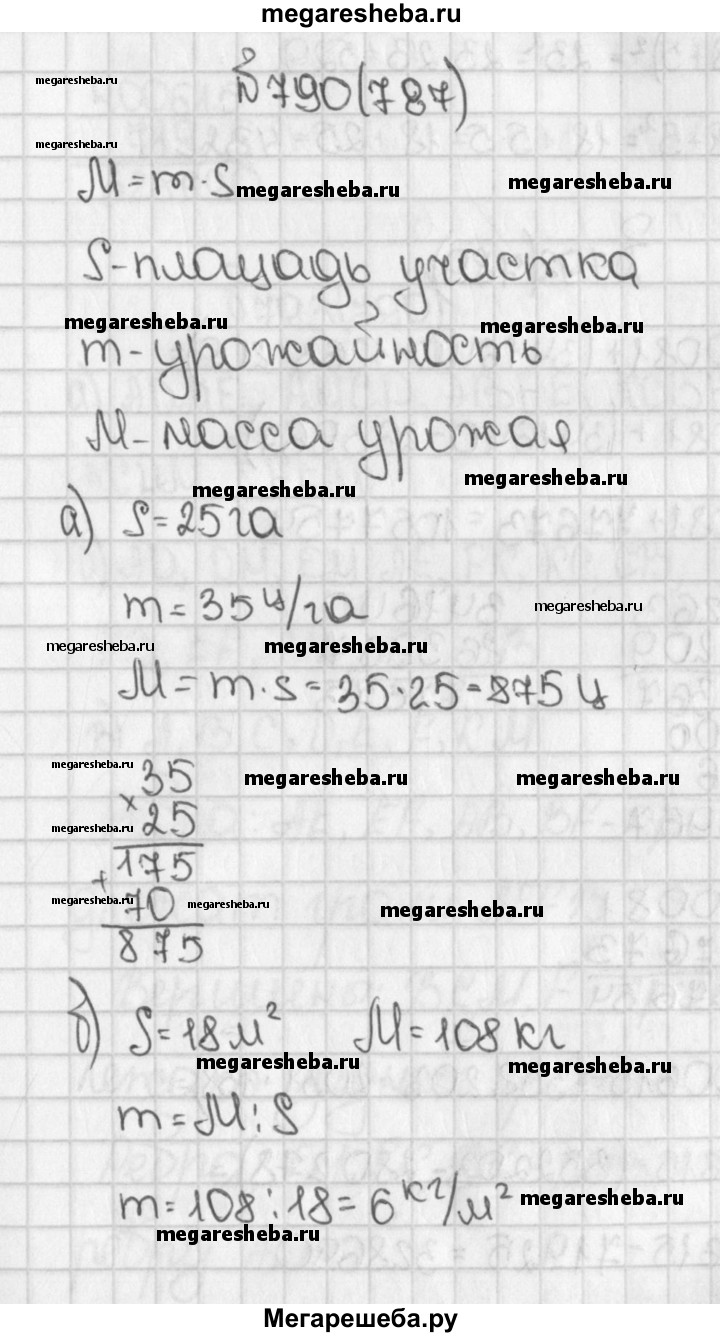 megaresheba.ru
megaresheba.ru
№790(787)
megaresheba.ru
M=m·S megaresheba.ru megaresheba.ru
S-площадь участка
megaresheba.ru megaresheba.ru
m-урожайность
M-масса урожая
megaresheba.ru megaresheba.ru
а) S=25га
m=35ц/га megaresheba.ru
megaresheba.ru megaresheba.ru
M=m·s=35·25=875ц
megaresheba.ru 35 megaresheba.ru megaresheba.ru
megaresheba.ru × 25
+ 175
megaresheba.ru 70 megaresheba.ru megaresheba.ru
875
б) S=18м² M=108кг
megaresheba.ru megaresheba.ru
m=M:S
m=108:18=6кг/м² megaresheba.ru
megaresheba.ru
Мегарешеба.ру